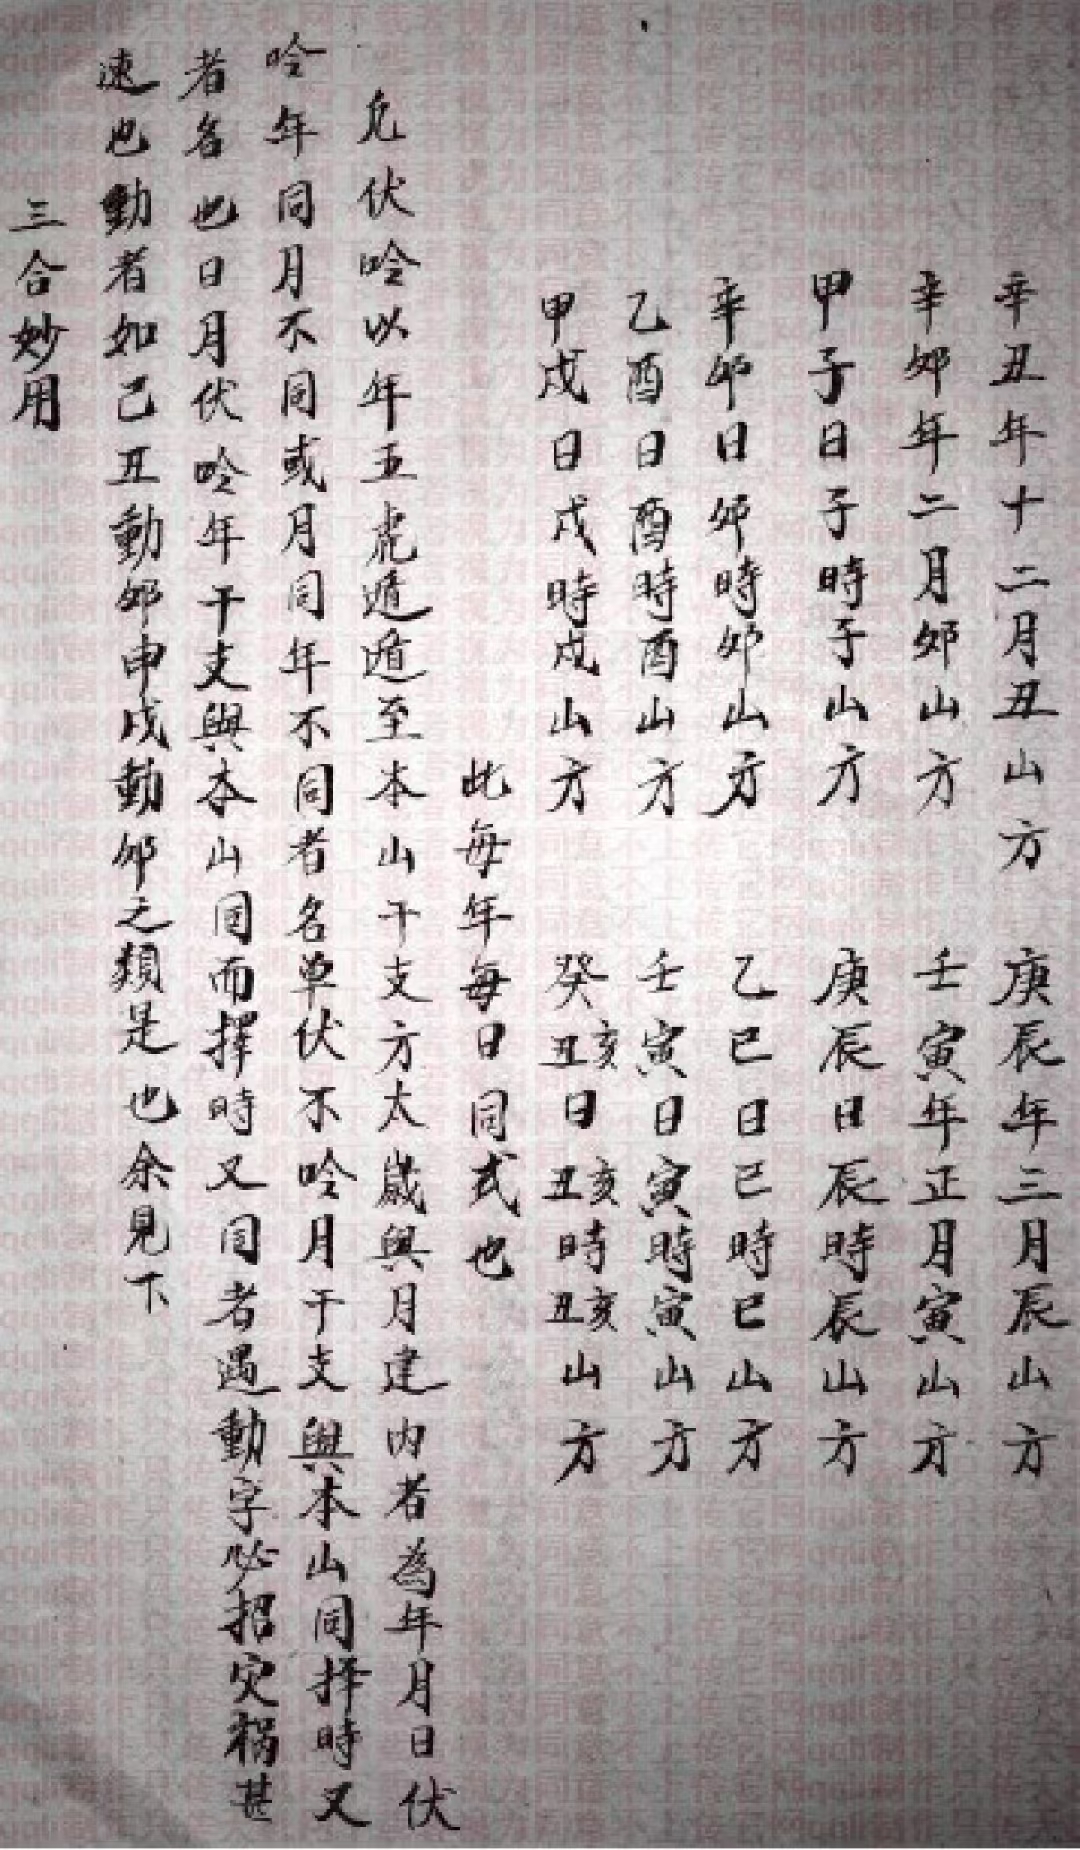 辛丑年十二月丑山方　庚辰年三月辰山方
辛卯年二月卯山方　壬寅年正月寅山方
甲子日子時子山方　庚辰日辰時辰山方
辛卯日卯時卯山方　乙巳日巳時巳山方
乙酉日酉時酉山方　壬寅日寅時寅山方
甲戌日戌時戌山方　癸丑亥日丑亥時丑亥山方
此每年每日同式也
凡伏吟以年五虎遁遁至本山干支方太歲與月建內者為年月日伏
吟年同月不同或月同年不同者名单伏不吟月干支與本山同择時又
者名也日月伏吟年干支與本山同而擇時又同者遇動字必招灾禍甚
速也動者如己丑動卯申戌動卯之類是也余見下
三合妙用